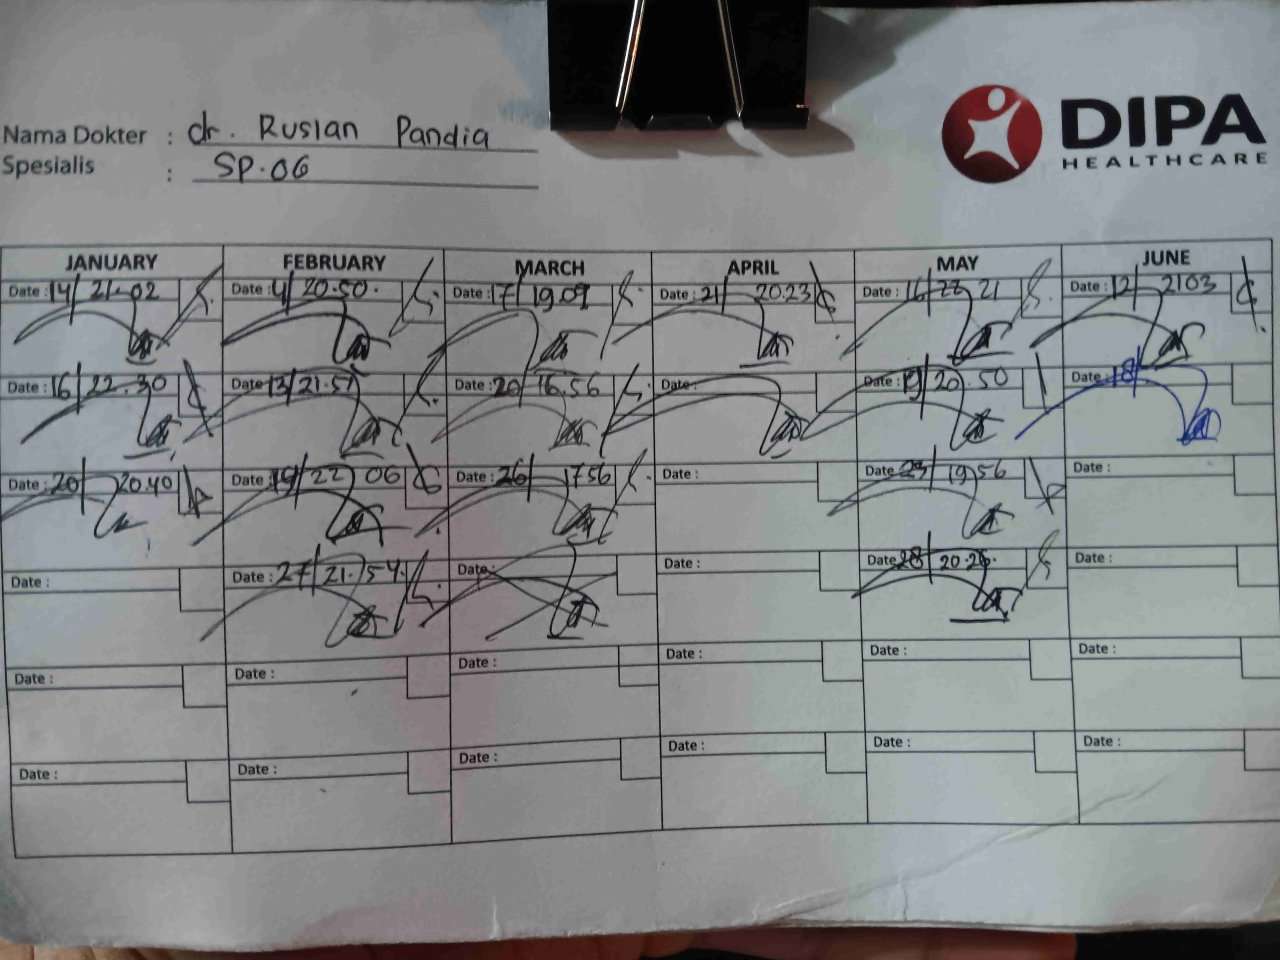 Nama Dokter : dr. Ruslan Pandia
Spesialis : SP.OG
DIPA
HEALTHCARE
JANUARY FEBRUARY MARCH APRIL MAY JUNE
Date: 14/ 21.02 Date: 4/ 20.50. Date: 17/ 19.09 Date: 21/ 20.23 Date: 16/ 22 21 Date: 12/ 2103
Date: 16/ 22.30 Date: 13/21.51 Date: 20/ 16.56 Date: Date: 19/ 20.50 Date: 18/
Date: 20/ 20.40 Date: 19/ 22 06 Date: 26/ 1756 Date: Date: 23/ 1956 Date:
Date: Date: 27/ 21.54. Date: Date: Date: 28/ 20.26. Date:
Date: Date: Date: Date: Date: Date:
Date: Date: Date: Date: Date: Date: